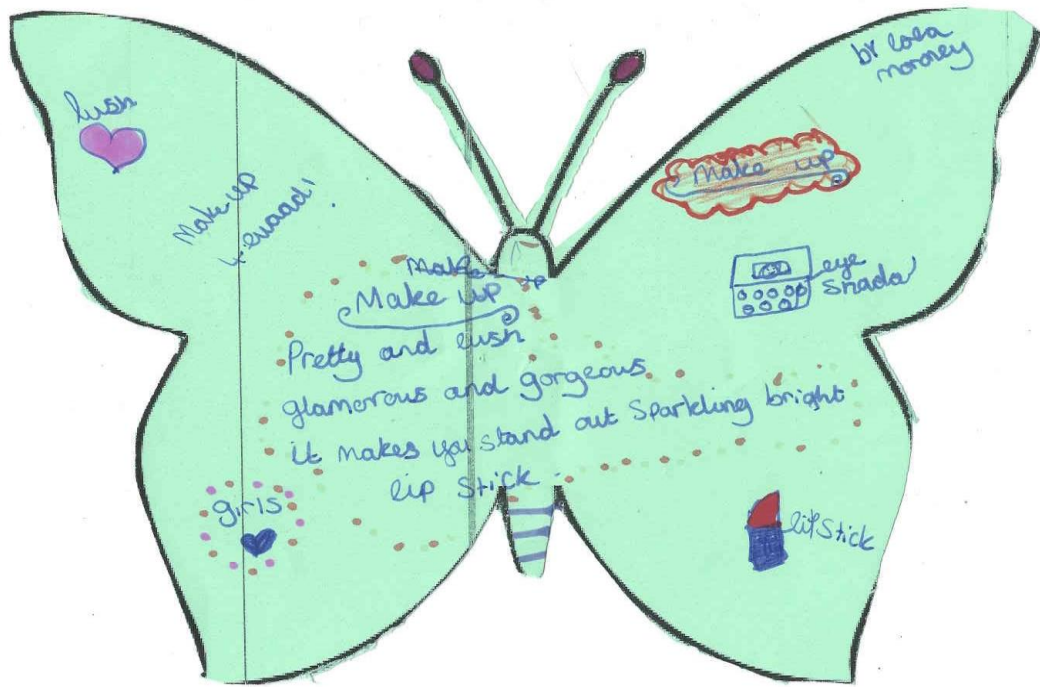 by Lola
moroney
lush
Make up
Make up
eye
shada
Make up
Make up
Pretty and lush
glamorous and gorgeous
it makes you stand out sparkling bright
lip stick
girls
lipstick